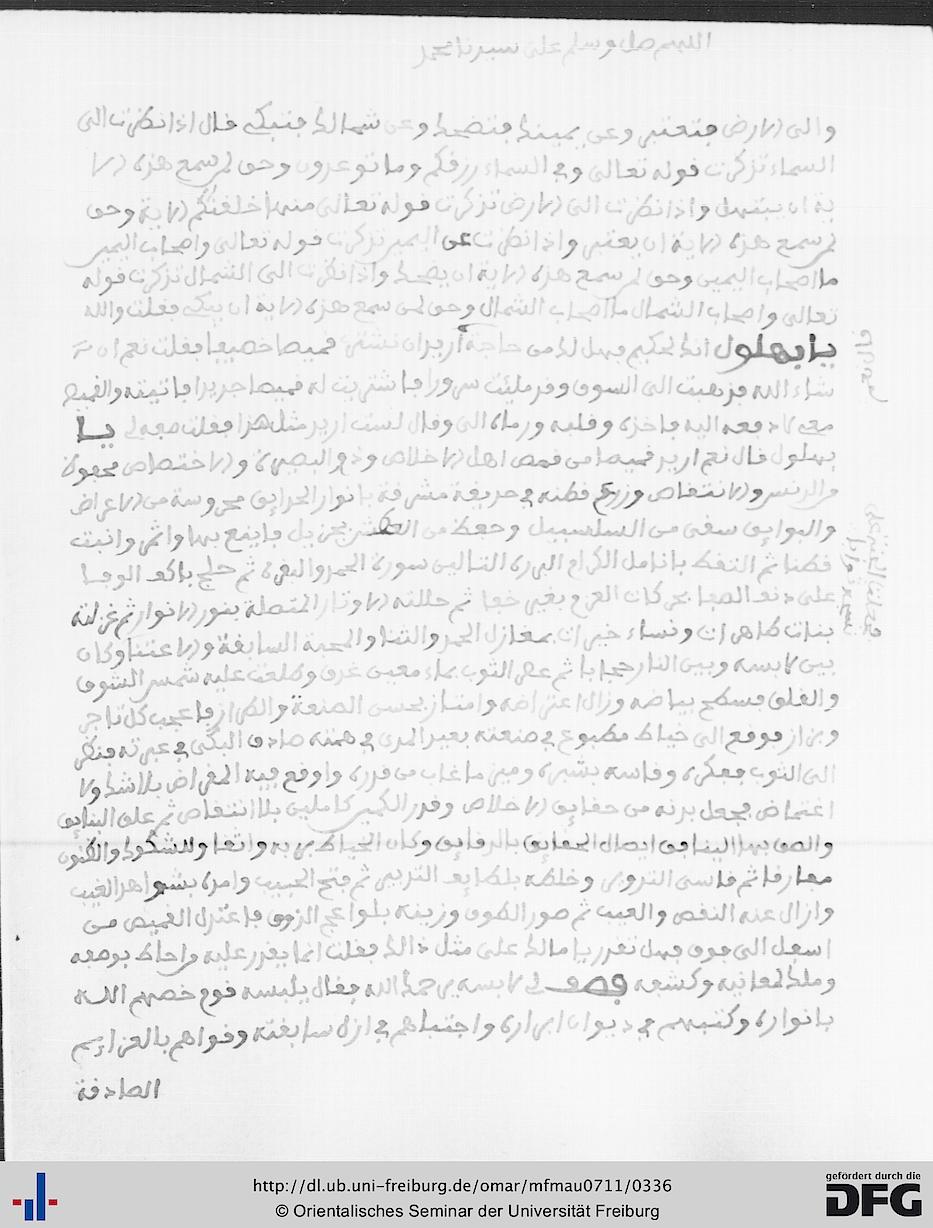 اللهم صل وسلم على سيدنا محمد
والى الارض فتعتبر وعن يمينك فتضحك وعن شمالك فتبكي فال اذا نظرت الى
السماء تذكرت فوله تعالى وفي السماء رزفكم وما توعدون وحق لمن سمع هذه الا
ية ان يبتهل واذا نظرت الى الارض تذكرت فوله تعالى منها خلفنكم الاية وحق
لمن سمع هذه الاية ان يعتبر واذا نظرت عن اليمين تذكرت فوله تعالى واصحاب اليمين
ما اصحاب اليمين وحق لمن سمع هذه الاية ان يضحك واذا نظرت الى الشمال تذكرت فوله
تعالى واصحاب الشمال ما اصحاب الشمال وحق لمن سمع هذه الاية ان يبكي ففلت والله
يا بهلول انك لحكيم فهل لك من حاجة اريد ان تشتري فميصا ففلت نعم ان
شاء الله فذهبت الى السوق وفد ملئت سرورا فاشتريت له فميصا جديدا فاتيته والفميص
معي لادفعه اليه فاخذه وفلبه ورماه الي وفال لست اريد مثل هذا ففلت صفه لي يا
بهلول فال نعم اريد فميصا من فمص اهل الاخلاص وذوي البصيرة والاختصاص محفوظا
والدنس والانتفاص وزرع فطنه في حديفة مشرفة بانوار الحدايق محروسة من الاعراض
والبوايق سفي من السلسبيل وحفظ من جبريل فاينع بها واثمر وانبت
فطنا ثم التفط بانامل الكرام البررة التالين سورة الحمد والبفرة ثم حلج باكف الوفا
على دف الصفا بحركات الفرع بغير خفا ثم حللته الاوتار المتصلة بنور الانوار ثم غزلته
بنات طاهرات ونساء خيرات بمغازل الحمد والثنا والمحبة السابفة والاعتنا وكان
بين لابسه وبين النار حجابا ثم الثوب بماء معين غدق وطلعت عليه شمس الشوق
والفلق فسطع بياضه وزال اعتراضه وامتاز بحسن الصنعة والطراز فاعجب كل تاجر
وبزاز فوفع الى خياط مطبوع في صنعته بعيد المدى في همته صادق البكى في عبرته فنظر
الى الثوب بفكره وفاسه بشبره وميز ما غاب من فدره واوفع فيه المفراض بلا شك ولا
اغتماض فجعل بدنه من حفايق الاخلاص وفدر الكمين كاملين بلا انتفاص ثم على البنايق
والصق بها اللينافق ايصال الحفايق بالرفايق وكان الخياط بربه واثفا وللشكوك والظنون
مفارفا ثم فاسى التدوير وخلطه بلطايف التدبير ثم فتح الجيب وامده بشواهد الغيب
وازال عنه النفص والعيب ثم صور الطوق وزينه بلواعج الذوق فاعتدل الفميص من
اسفل الى فوق فهل تفدر يا مالك على مثل ذالك ففلت انما يفدر عليه من احاط بوصفه
وملك لمعانيه وكشفه فصف لي لابسه يرحمك الله ففال يلبسه فوم خصهم الله
بانواره وكتبهم في ديوان ابراره واجتباهم في ازل سابفته وفواهم بالعزايم
الصادفة
http://dl.ub.uni-freiburg.de/omar/mfmau0711/0336
© Orientalisches Seminar der Universität Freiburg
gefördert durch die
DFG